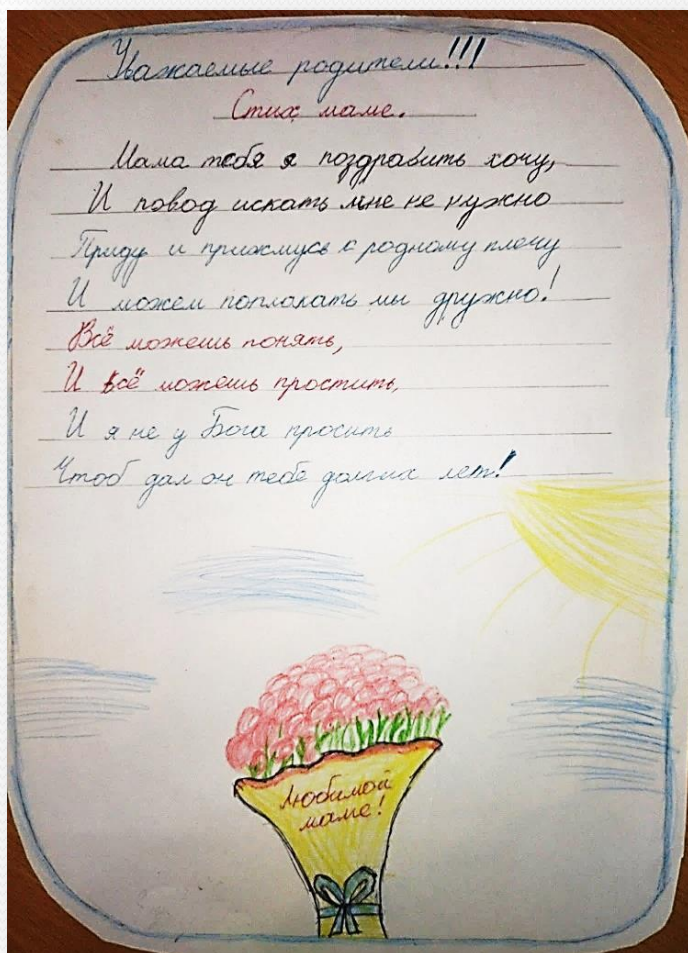 Уважаемые родители!!!
Стих маме.
Мама тебя я поздравить хочу,
И повод искать мне не нужно
Приду и прижмусь к родному плечу
И можем поплакать мы дружно!
Всё можешь понять,
И всё можешь простить,
И я не у Бога просить
Чтоб дал он тебе долгих лет!
Любимой
маме!